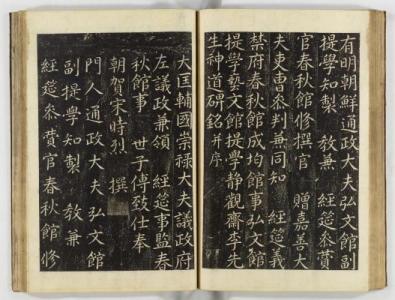 有明朝鮮通政大夫弘文館副
提學知製 敎兼 經筵叅贊
官春秋館修撰官 贈嘉善大
夫吏曹叅判兼同知 經筵義
禁府春秋館成均館事弘文館
提學藝文館提學靜觀齋李先
生神道碑銘 并序
大匡輔國崇祿大夫議政府
左議政兼領 經筵事監春
秋館事 世子傅致仕奉
朝賀宋時烈 撰
門人通政大夫弘文館
副提學知製 敎兼
經筵叅贊官春秋館修